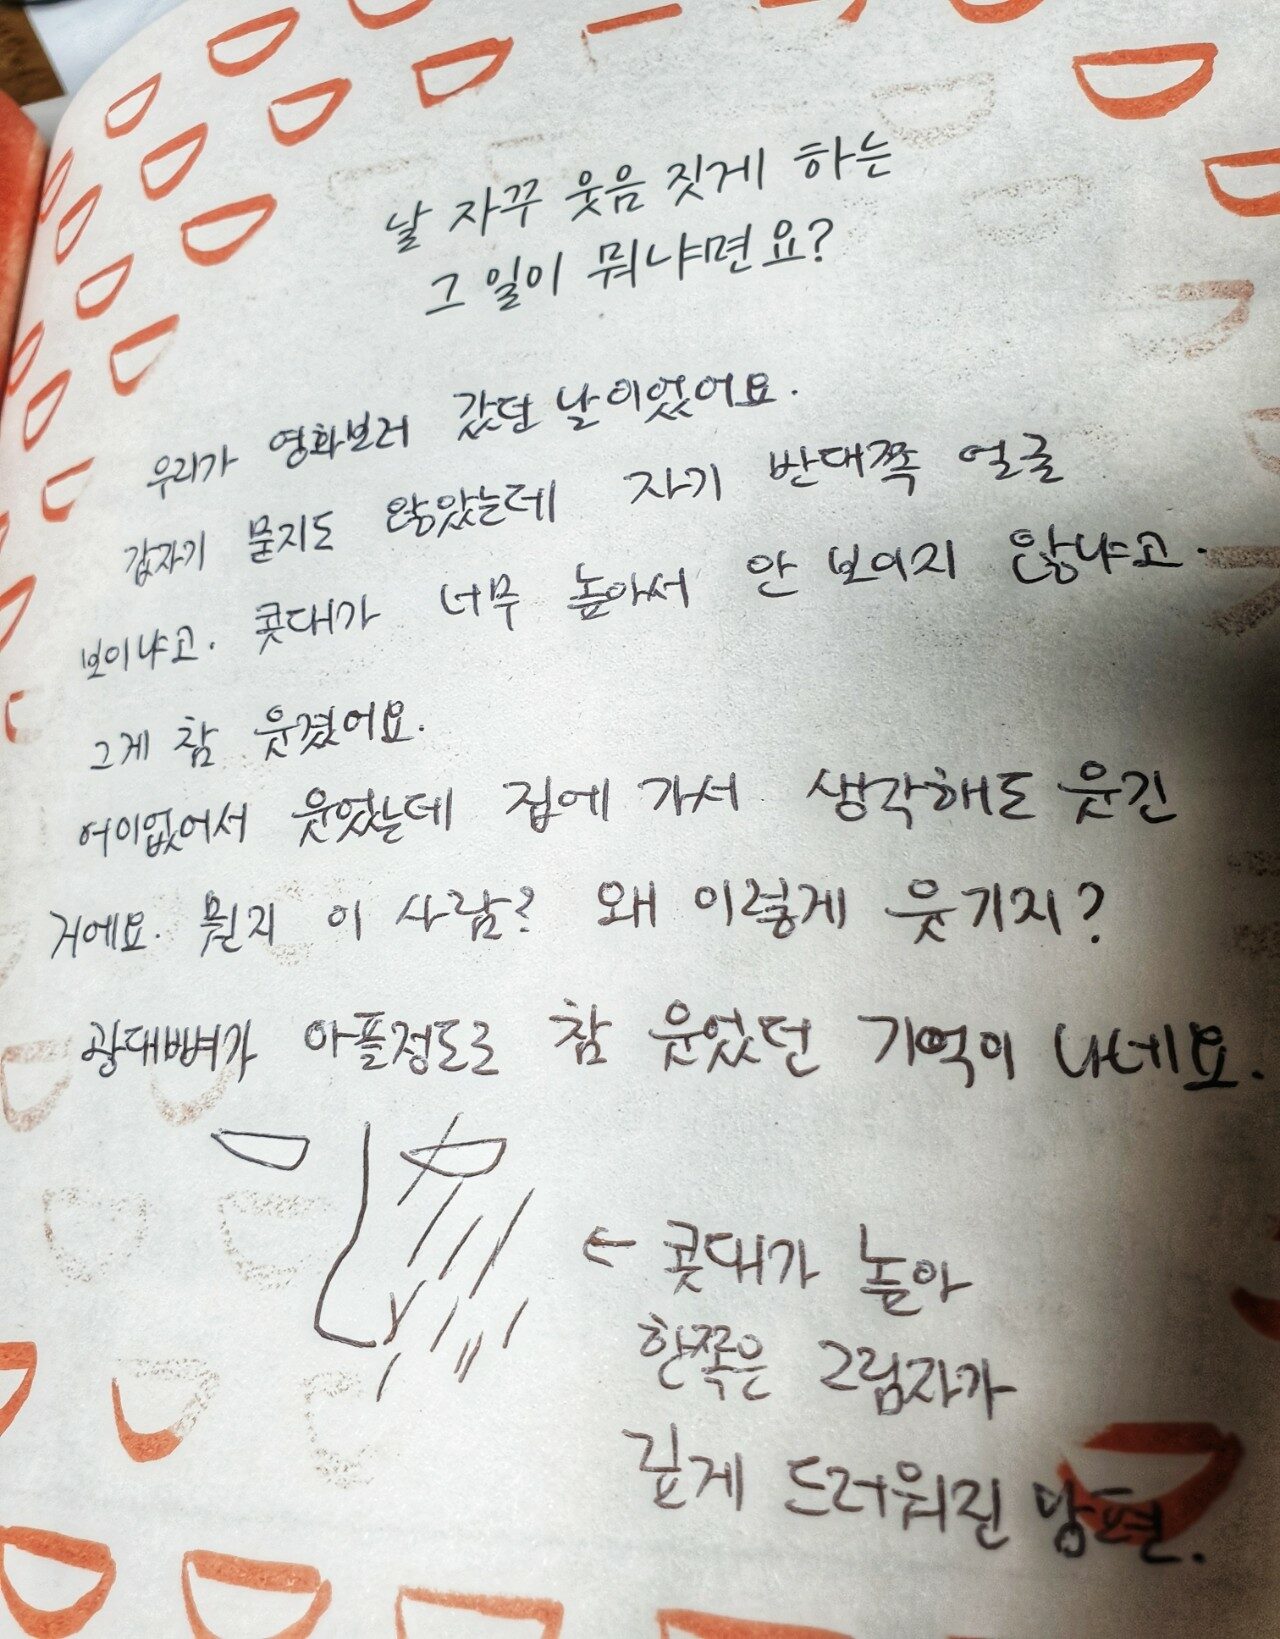 날 자꾸 웃음 짓게 하는
그 일이 뭐냐면요?
우리가 영화보러 갔던 날이었어요.
갑자기 묻지도 않았는데 자기 반대쪽 얼굴
보이냐고. 콧대가 너무 높아서 안 보이지 않냐고.
그게 참 웃겼어요.
어이없어서 웃었는데 집에 가서 생각해도 웃긴
거에요. 뭘지 이 사람? 왜 이렇게 웃기지?
광대뼈가 아플정도로 참 웃었던 기억이 나네요.
← 콧대가 높아
한쪽은 그림자가
깊게 드러워진 남편.